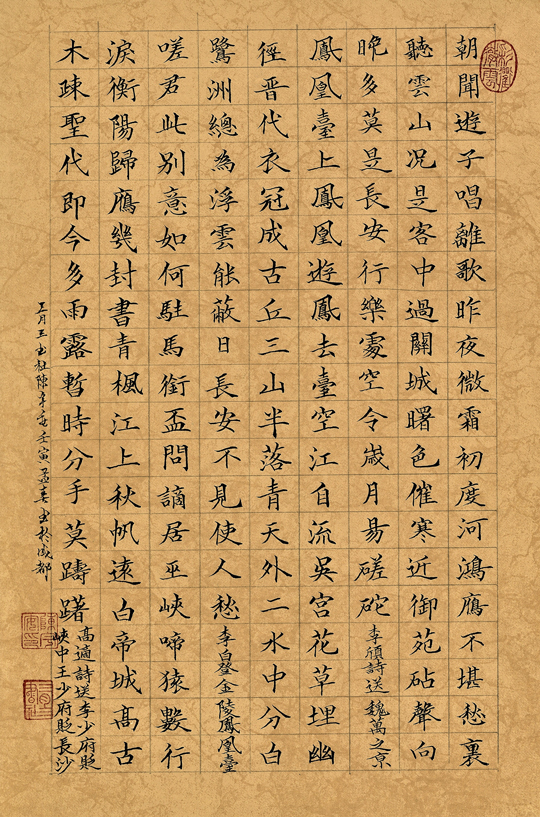 朝聞遊子唱離歌昨夜微霜初度河鴻鴈不堪愁裏
聽雲山況是客中過關城曙色催寒近御苑砧聲向
晚多莫是長安行樂處空令歲月易磋砣李頎詩送魏萬之京
鳳凰臺上鳳凰遊鳳去臺空江自流吳宮花草埋幽
徑晋代衣冠成古丘三山半落青天外二水中分白
鷺洲總為浮雲能蔽日長安不見使人愁李白登金陵鳳凰臺
嗟君此別意如何駐馬銜盃問謫居巫峽啼猿數行
淚衡陽歸鴈幾封書青楓江上秋帆遠白帝城高古
木疎聖代即今多雨露暫時分手莫躊躇
高適詩送李少府貶
峽中王少府貶長沙
壬寅孟春書於成都